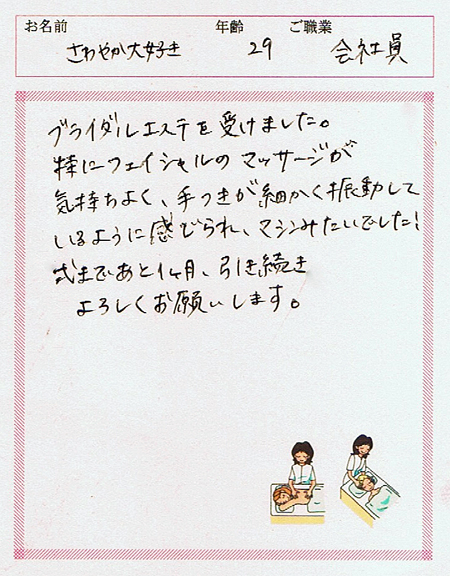 お名前 年齢 ご職業
さわやか大好き 29 会社員
ブライダルエステを受けました。
特にフェイシャルのマッサージが
気持ちよく、手つきが細かく振動して
いるように感じられ、マシンみたいでした!
式まであと1ヶ月、引き続き
よろしくお願いします。